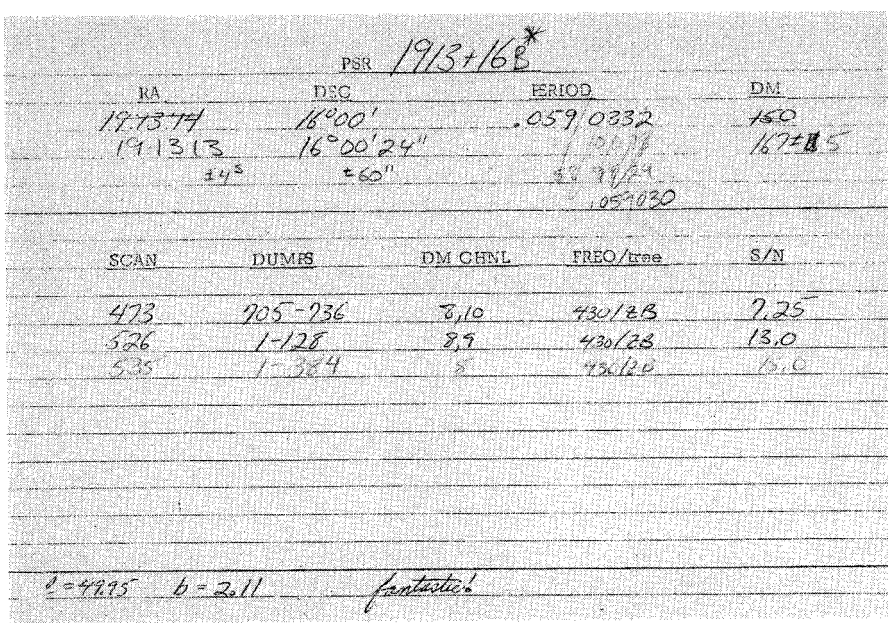 PSR 1913+16B*
RA DEC PERIOD DM
19 13 14 16°00' .0590332 150
19 13 13 16°00'24" 167± 5
±4ˢ ±60"
.059030
SCAN DUMPS DM CHNL FREQ/tree S/N
473 705-736 8,10 430/ZB 7.25
526 1-128 8,9 430/ZB 13.0
535 1-384 8 430/ZB
l=49.95 b=2.11 fantastic!